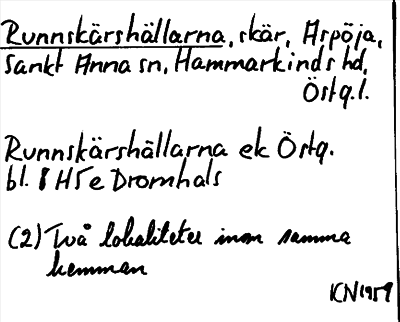 Runnskärshällarna, skär, Aspöja,
Sankt Anna sn, Hammarkinds hd,
Östg.l.
Runnskärshällarna ek Östg.
bl. 8 H5e Dromhals
(2) Två lokaliteter inom samma
hemman
KN 1959